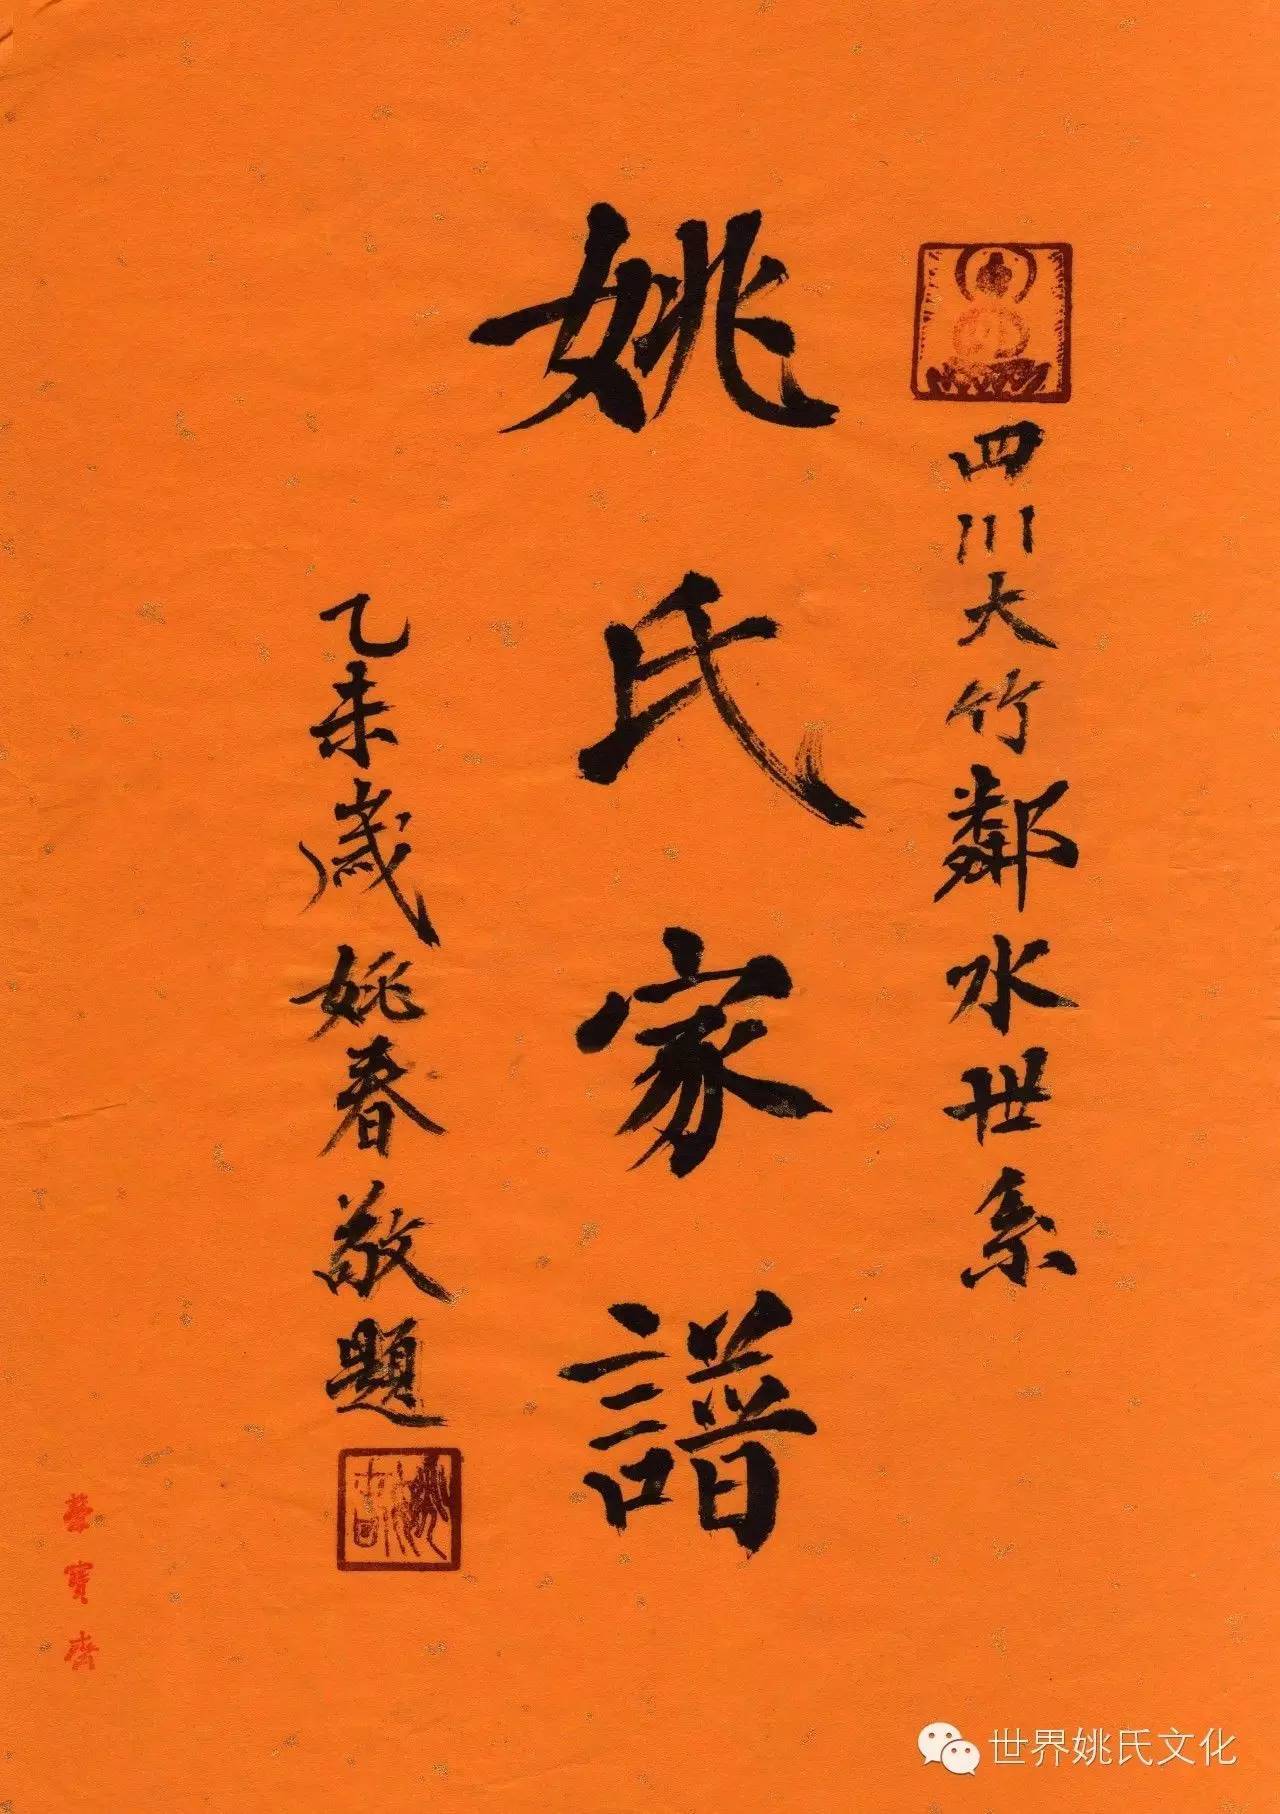 四川大竹鄰水世系
姚氏家譜
乙未歲姚春敬題
寶齋
世界姚氏文化